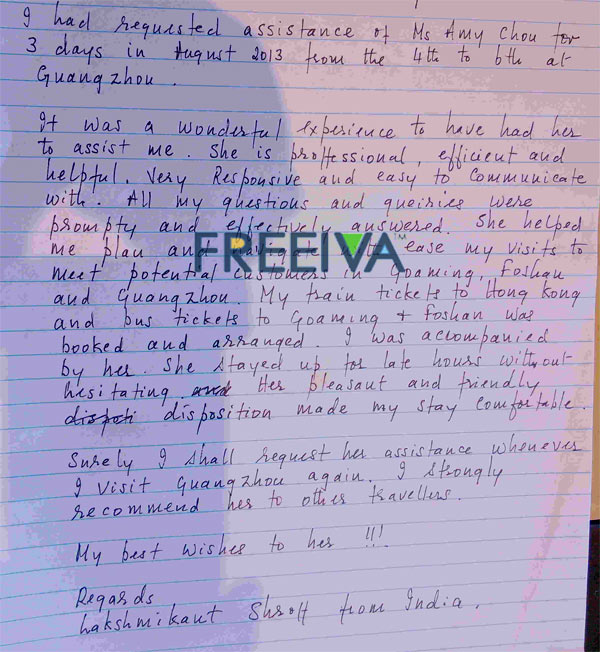 I had requested assistance of Ms Amy Chou for
3 days in August 2013 from the 4th to 6th at
Guangzhou.
It was a wonderful experience to have had her
to assist me. She is proffessional, efficient and
helpful. Very Responsive and easy to communicate
with. All my questions and queiries were
prompty and effectively answered. She helped
me plan and navigate with ease my visits to
FREEIVA™
meet potential customers in Goaming, Foshan
and Guangzhou. My train tickets to Hong Kong
and bus tickets to Goaming & Foshan was
booked and arranged. I was accompanied
by her. She stayed up for late hours without
hesitating. and Her pleasant and friendly
dispoti disposition made my stay comfortable.
Surely I shall request her assistance whenever
I visit Guangzhou again. I strongly
recommend her to other travellers.
My best wishes to her !!!
Regards
Lakshmikant Shroff from India.